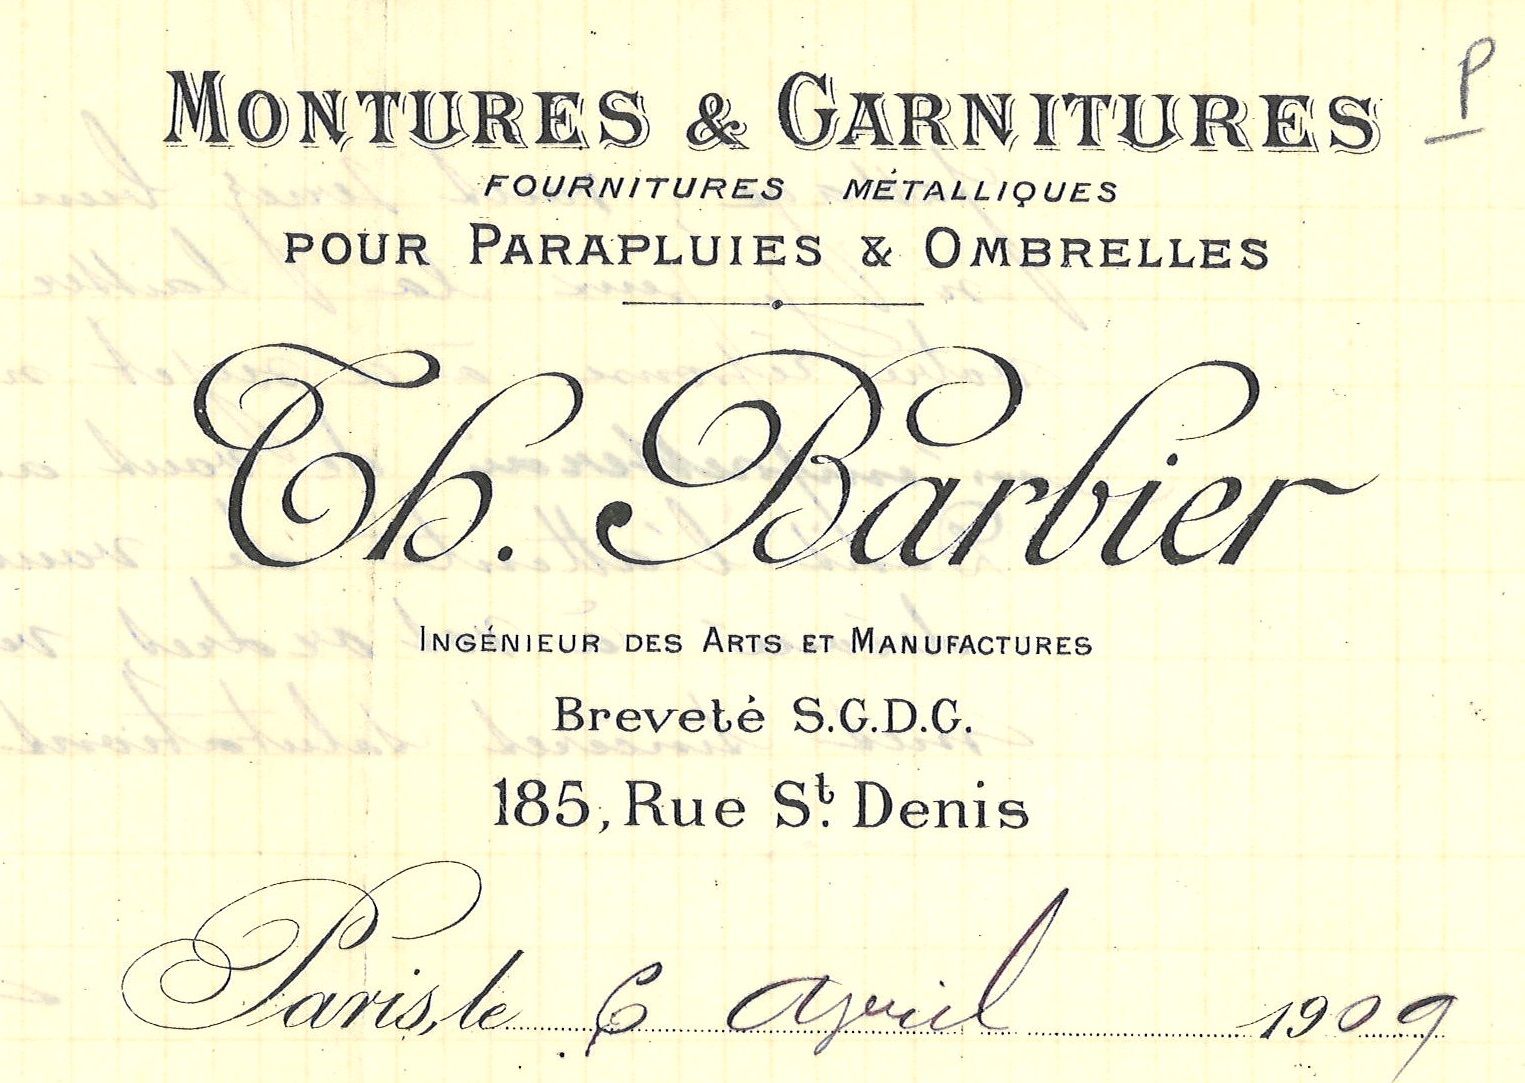 MONTURES & GARNITURES
P
FOURNITURES MÉTALLIQUES
POUR PARAPLUIES & OMBRELLES
Th. Barbier
INGÉNIEUR DES ARTS ET MANUFACTURES
Breveté S.G.D.G.
185, Rue St. Denis
Paris, le 6 Avril 1909